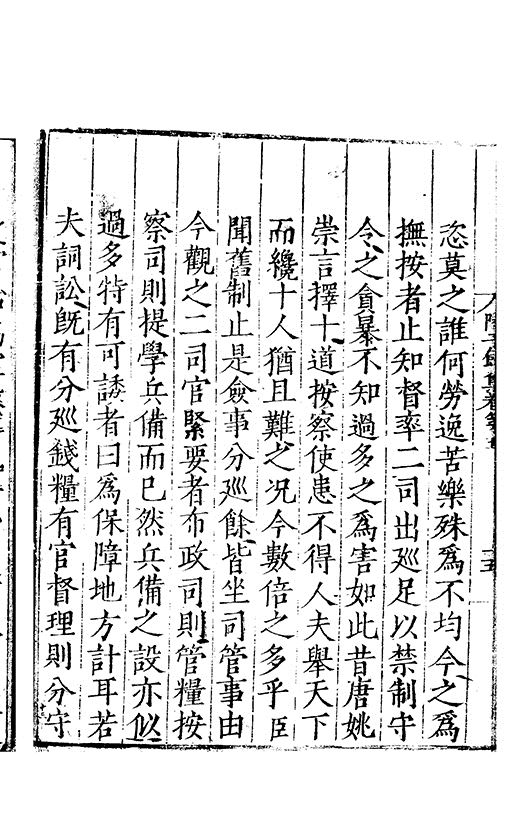 恣莫之誰何勞逸苦樂殊爲不均今之爲
撫按者止知督率二司出廵足以禁制守
令之貪暴不知過多之爲害如此昔唐姚
崇言擇十道按察使患不得人夫舉天下
而纔十人猶且難之况今數倍之多乎臣
聞舊制止是僉事分廵餘皆坐司管事由
今觀之二司官緊要者布政司則管糧按
察司則提學兵備而已然兵備之設亦似
過多特有可諉者曰爲保障地方計耳若
夫詞訟旣有分廵錢糧有官督理則分守